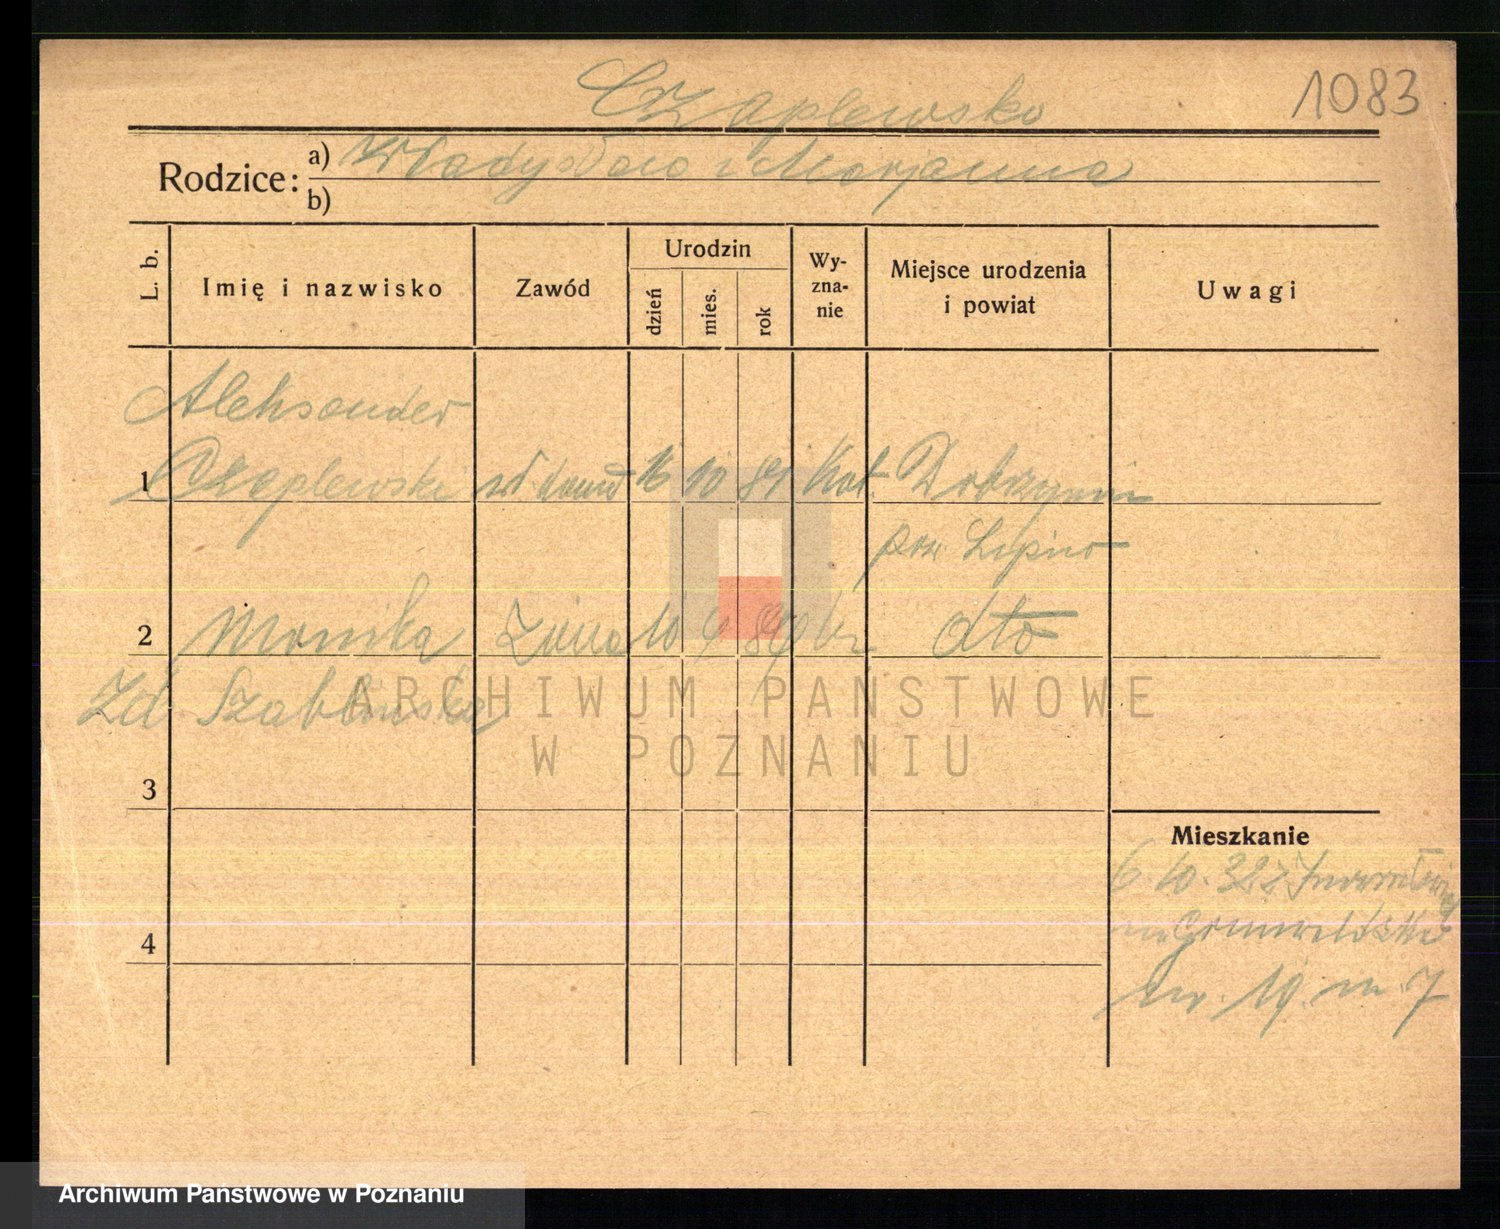 Czaplewsko
1083
Rodzice: a) Władysław i Marjanna
b)
L. b.
Imię i nazwisko
Zawód
Urodzin
dzień
mies.
rok
Wy-
zna-
nie
Miejsce urodzenia
i powiat
Uwagi
Aleksander
1 Czaplewski 16 10 81 Kat. Dobrzyniu
pow. Lipno
2 Monika Żona 10 9 89 dto
Zd Szablewska
ARCHIWUM PAŃSTWOWE
W POZNANIU
3
Mieszkanie
6.10.32 z Inowrocławia
Grunwaldzka
4
nr. 19. m. 7
Archiwum Państwowe w Poznaniu